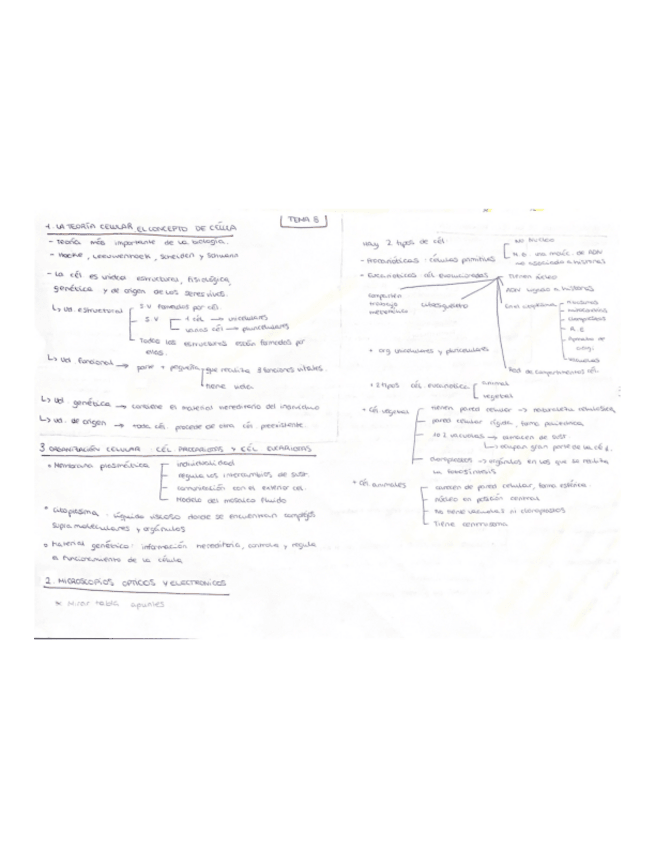 TEMA 8
1. LA TEORÍA CELULAR EL CONCEPTO DE CÉLULA
- Teoría más importante de la biología.
- Hooke, Leeuwenhoek, Schleiden y Schwann
- La cél es unidad estructural, fisiológica,
genética y de origen de los seres vivos.
↳ Ud. estructural
S.V formados por cél.
S.V
1 cél → unicelulares
varias cél → pluricelulares
Todas las estructuras están formadas por
ellas.
↳ Ud funcional → parte + pequeña
que realiza 3 funciones vitales.
tiene vida
↳ Ud. genética → contiene el material hereditario del individuo
↳ Ud. de origen → toda cél. procede de otra cél preexistente.
3 ORGANIZACIÓN CELULAR: CÉL PROCARIOTAS Y CÉL EUCARIOTAS
• Membrana plasmática
individualidad
regula los intercambios de sust.
comunicación con el exterior cel.
Modelo del mosaico fluido
• Citoplasma: líquido viscoso donde se encuentran complejos
supramoleculares y orgánulos
• Material genético: información hereditaria, controla y regula
el funcionamiento de la célula
2. MICROSCOPIOS OPTICOS Y ELECTRONICOS
* Mirar tabla apuntes
Hay 2 tipos de cél.
- Procarióticas: células primitivas
No Núcleo
una moléc. de ADN
no asociado a histonas
- Eucarióticas cél evolucionadas
Tienen núcleo
ADN ligado a histonas
En el citoplasma
ribosomas
mitocondrias
cloroplastos
R.E
Aparato de
Golgi
vacuolas
Red de compartimentos cél.
comparten
trabajo
metabólico
citoesqueleto
• org unicelulares y pluricelulares
• 2 tipos cél eucariótica
animal
vegetal
• Cél vegetal
tienen pared celular → naturaleza celulósica
pared celular rígida, forma poliédrica
vacuolas → almacén de sust.
↳ ocupan gran parte de la cél.
cloroplastos → orgánulos en los que se realiza
la fotosíntesis
• Cél animales
carecen de pared celular, forma esférica
núcleo en posición central
No tiene vacuolas ni cloroplastos
Tiene centrosoma